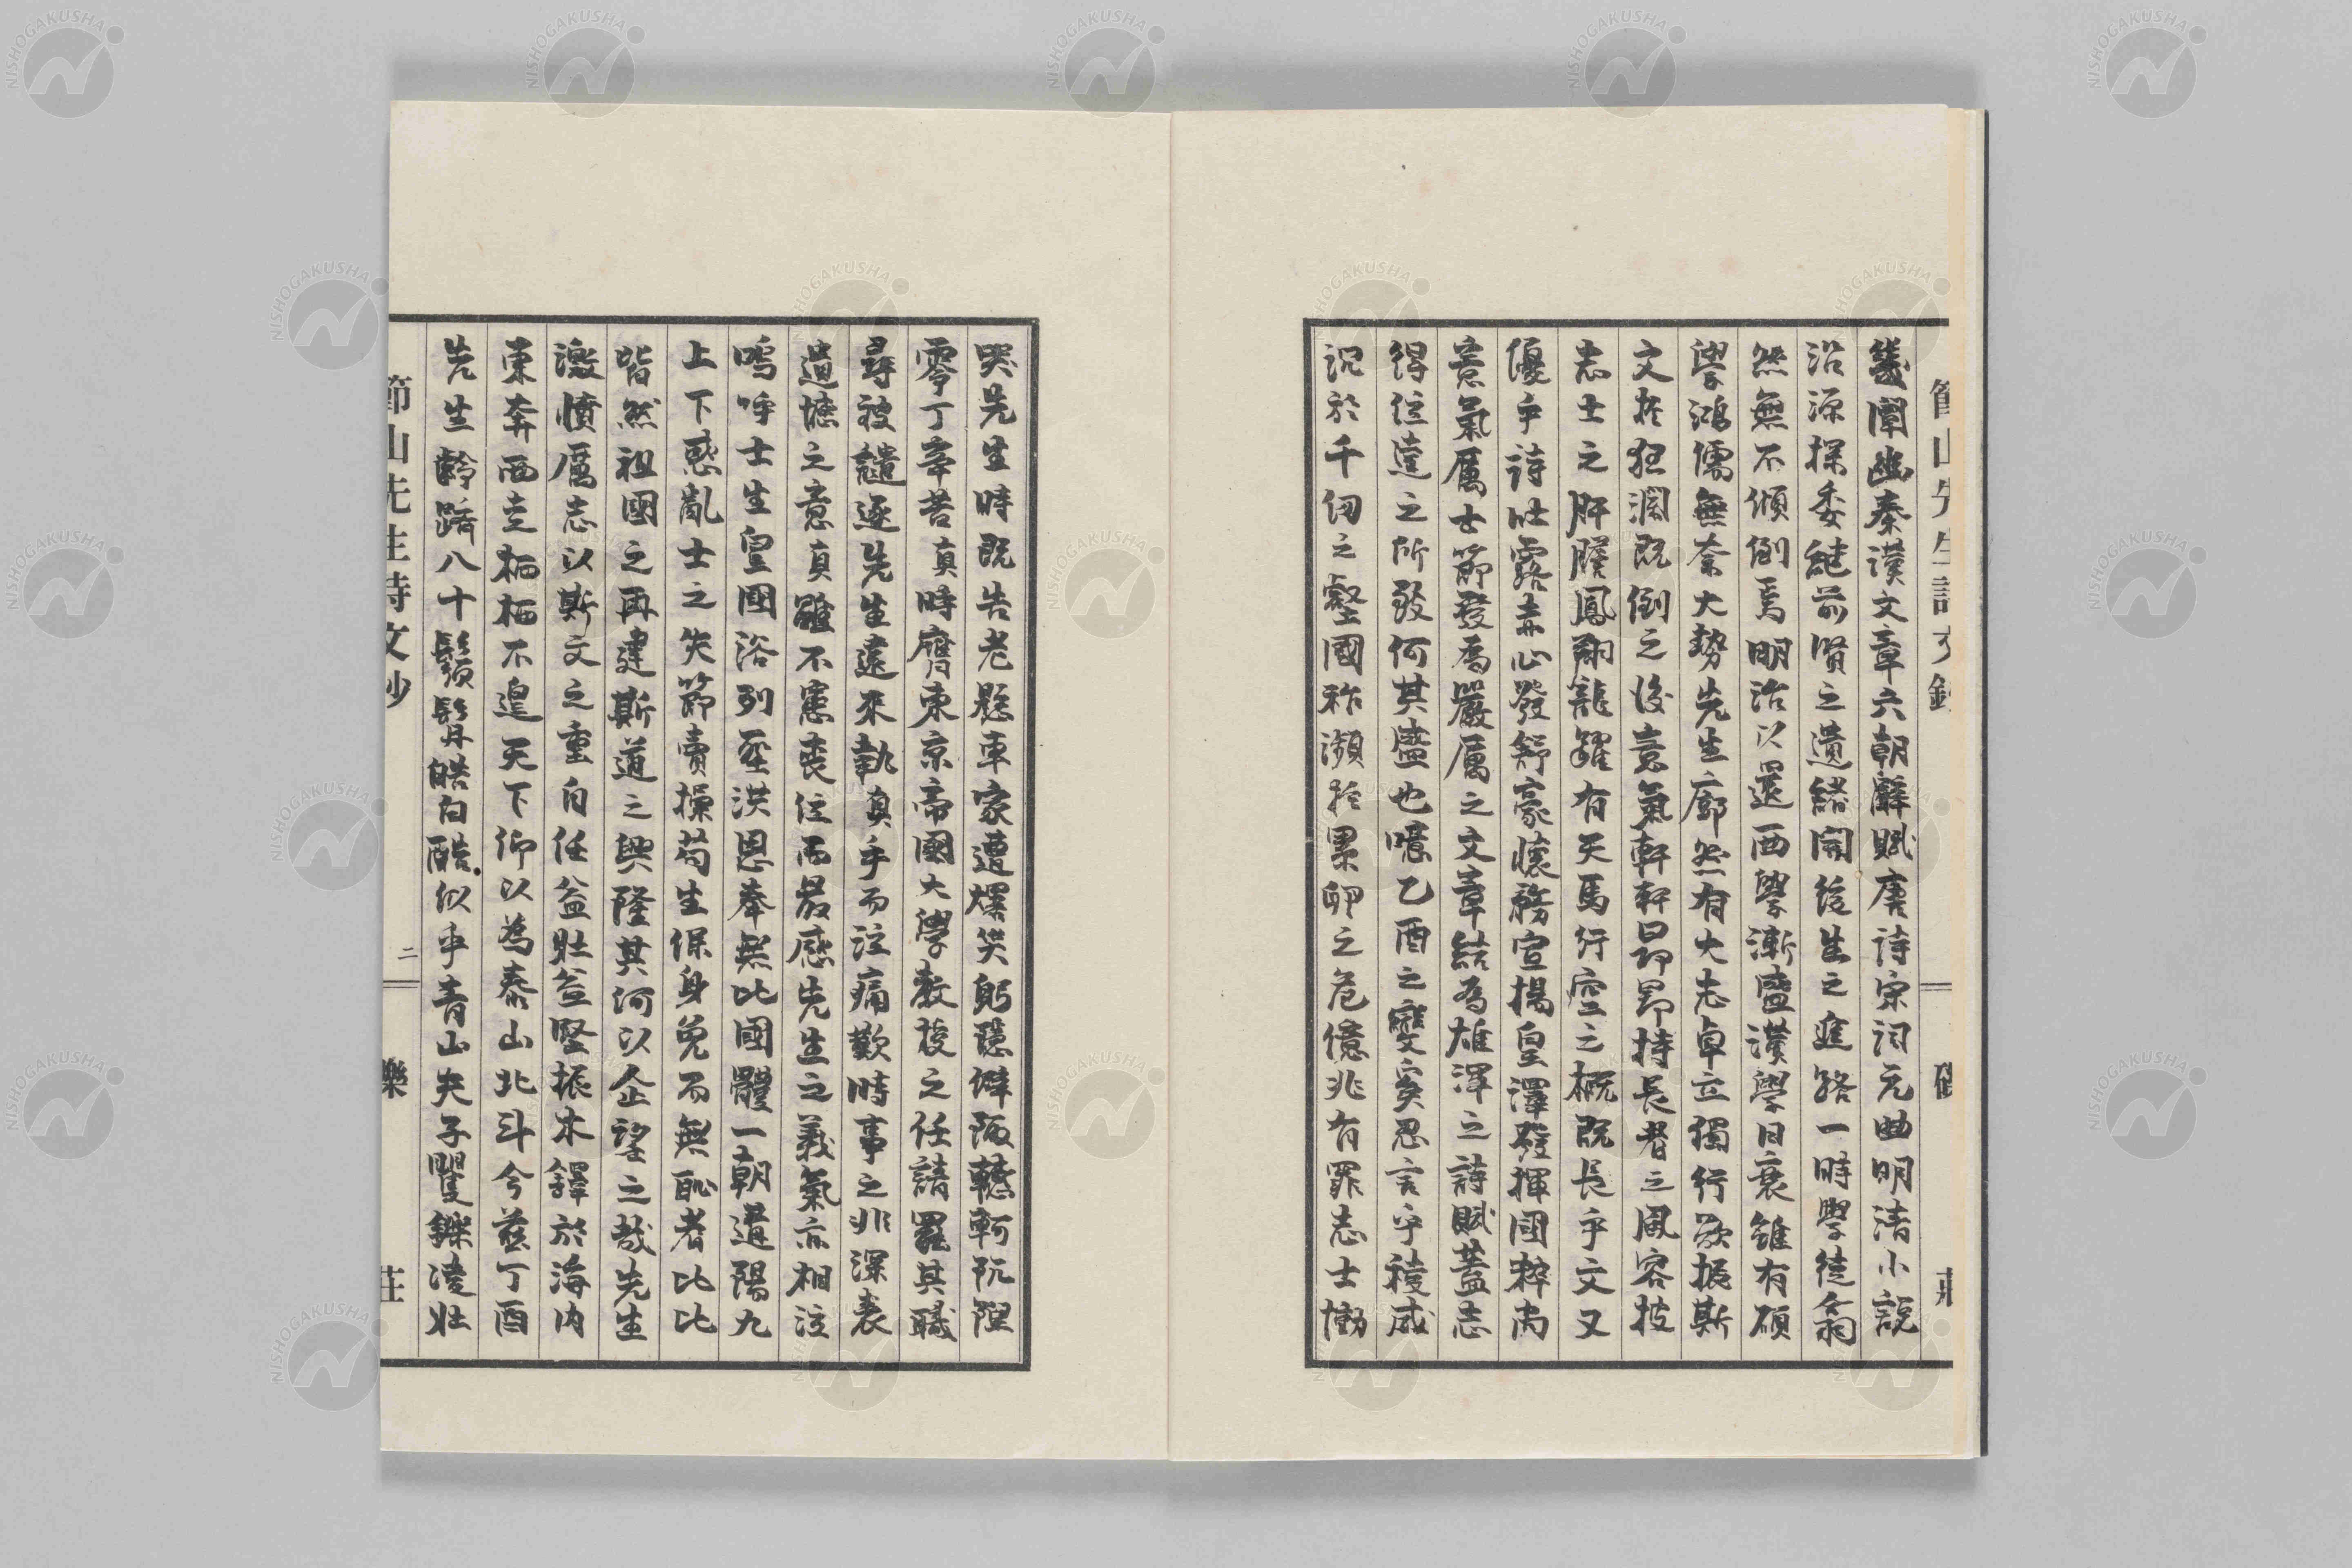 節山先生詩文鈔
幾闡幽秦漢文章六朝辭賦唐詩宋詞元曲明清小說
沿源探委繼前賢之遺緒開後生之進路一時學徒翕
然無不傾倒焉明治以還西學漸盛漢學日衰雖有碩
學鴻儒無奈大勢先生廓然有大志卓立獨行欲振斯
文於狂瀾既倒之後意氣軒軒昂昂持長者之風容披
志士之肝膽鳳翔龍躍有天馬行空之概既長乎文又
優乎詩吐露赤心發舒豪懷務宣揚皇澤發揮國粹尚
意氣厲士節發為嚴厲之文章結為雄渾之詩賦蓋志
得位達之所致何其盛也噫乙酉之變奚忍言乎稜威
汜於千仞之壑國祚瀕於累卵之危億兆有罪志士慟
哭先生時既告老懸車家遭爆災躬隱僻陬轗軻阨隉
零丁辛苦真時膺東京帝國大學教授之任請罷其職
尋被譴逐先生遠來執真手而泣痛歎時事之非深表
遺憾之意真雖不憲喪位而最感先生之義氣亦相泣
嗚呼士生皇國浴列聖洪恩奉無比國體一朝遘陽九
上下惑亂士之失節賣操苟生保身免而無恥者比比
皆然祖國之再建斯道之興隆其何以企望之哉先生
激憤厲志以斯文之重自任益壯益堅振木鐸於海內
東奔西走栖栖不遑天下仰以為泰山北斗今茲丁酉
先生齡躋八十鬚髯皓白酷似乎青山夫子矍鑠凌壯
節山先生詩文鈔
二
樂
莊